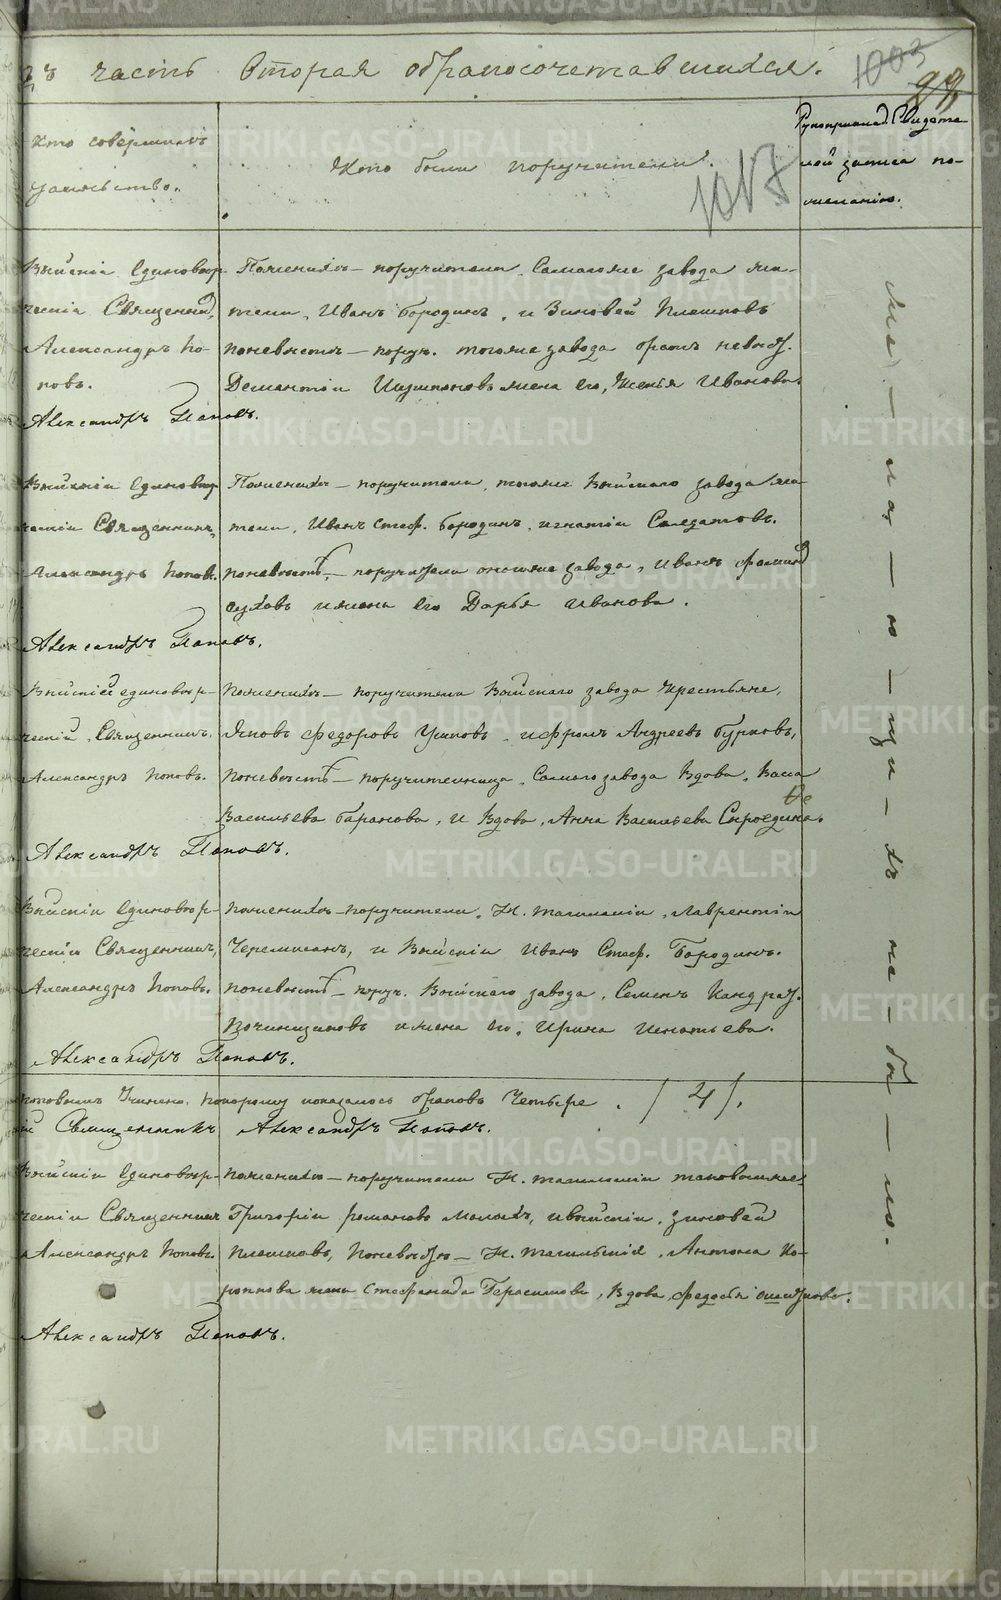 часть вторая обракосочетавшихся.
1003
Кто совершалъ
таинство.
Кто были поручители.
1013
Рукоприклад. Свидете
лей записа по
желанію.
Выйскіи Единовер
ческіи Священник,
Александръ По-
повъ.
Александръ Поповъ.
Поженихѣ — поручители, Самагоже завода жи-
тели, Иванъ Бородинъ, и Зиновей Плешковъ
поневѣстѣ — поруч. тогоже завода братъ невѣст.
Дементіи жена его, Ивановъ
Выйскіи Единовер
ческіи Священникъ,
Александръ Поповъ.
Александръ Поповъ.
Поженихѣ — поручители, тогоже Выйскаго завода жи-
тели, Иванъ Стеф. Бородинъ, игнатіи Солдатовъ.
поневѣстѣ — поручители онагоже завода, Иванъ
суховъ ижена его Дарья Иванова.
Выйскіи единовер-
ческій Священникъ.
Александръ Поповъ.
Александръ Поповъ.
Поженихѣ — поручители Выйскаго завода Крестьяне,
Яковъ Федоровъ Ушковъ, иФролъ Андреевъ Бурковъ,
Поневѣстѣ — поручительница, Самаго завода Вдова, Васса
Васильева Баранова, и Вдова, Анна Васильева
Выйскіи Единовер-
ческіи Священникъ,
Александръ Поповъ.
Александръ Поповъ.
поженихѣ — поручители, Н. тагильскіи, Лаврентіи
Черемисинъ, и Выйскіи Иванъ Стеф. Бородинъ.
поневѣстѣ — поруч. Выйскаго завода, Семенъ Кандрат.
Починщиковъ ижена его, Ирина Игнатьева.
Поповымъ Учинено, покоторому показалось браковъ Четыре. /4/.
Священникъ Александръ Поповъ.
Выйскіи Единовер-
ческіи Священникъ
Александръ Поповъ.
Александръ Поповъ.
поженихѣ — поручители Н. тагильскіи
Григоріи романовъ ивыйскіи, зиновей
Плешковъ, Поневѣстѣ — Н. тагильскія, Антона Ко-
жена Стефанида Герасимова, Вдова, федосья
же — ла — ю — щи — хъ не — бы — ло.
METRIKI.GASO-URAL.RU